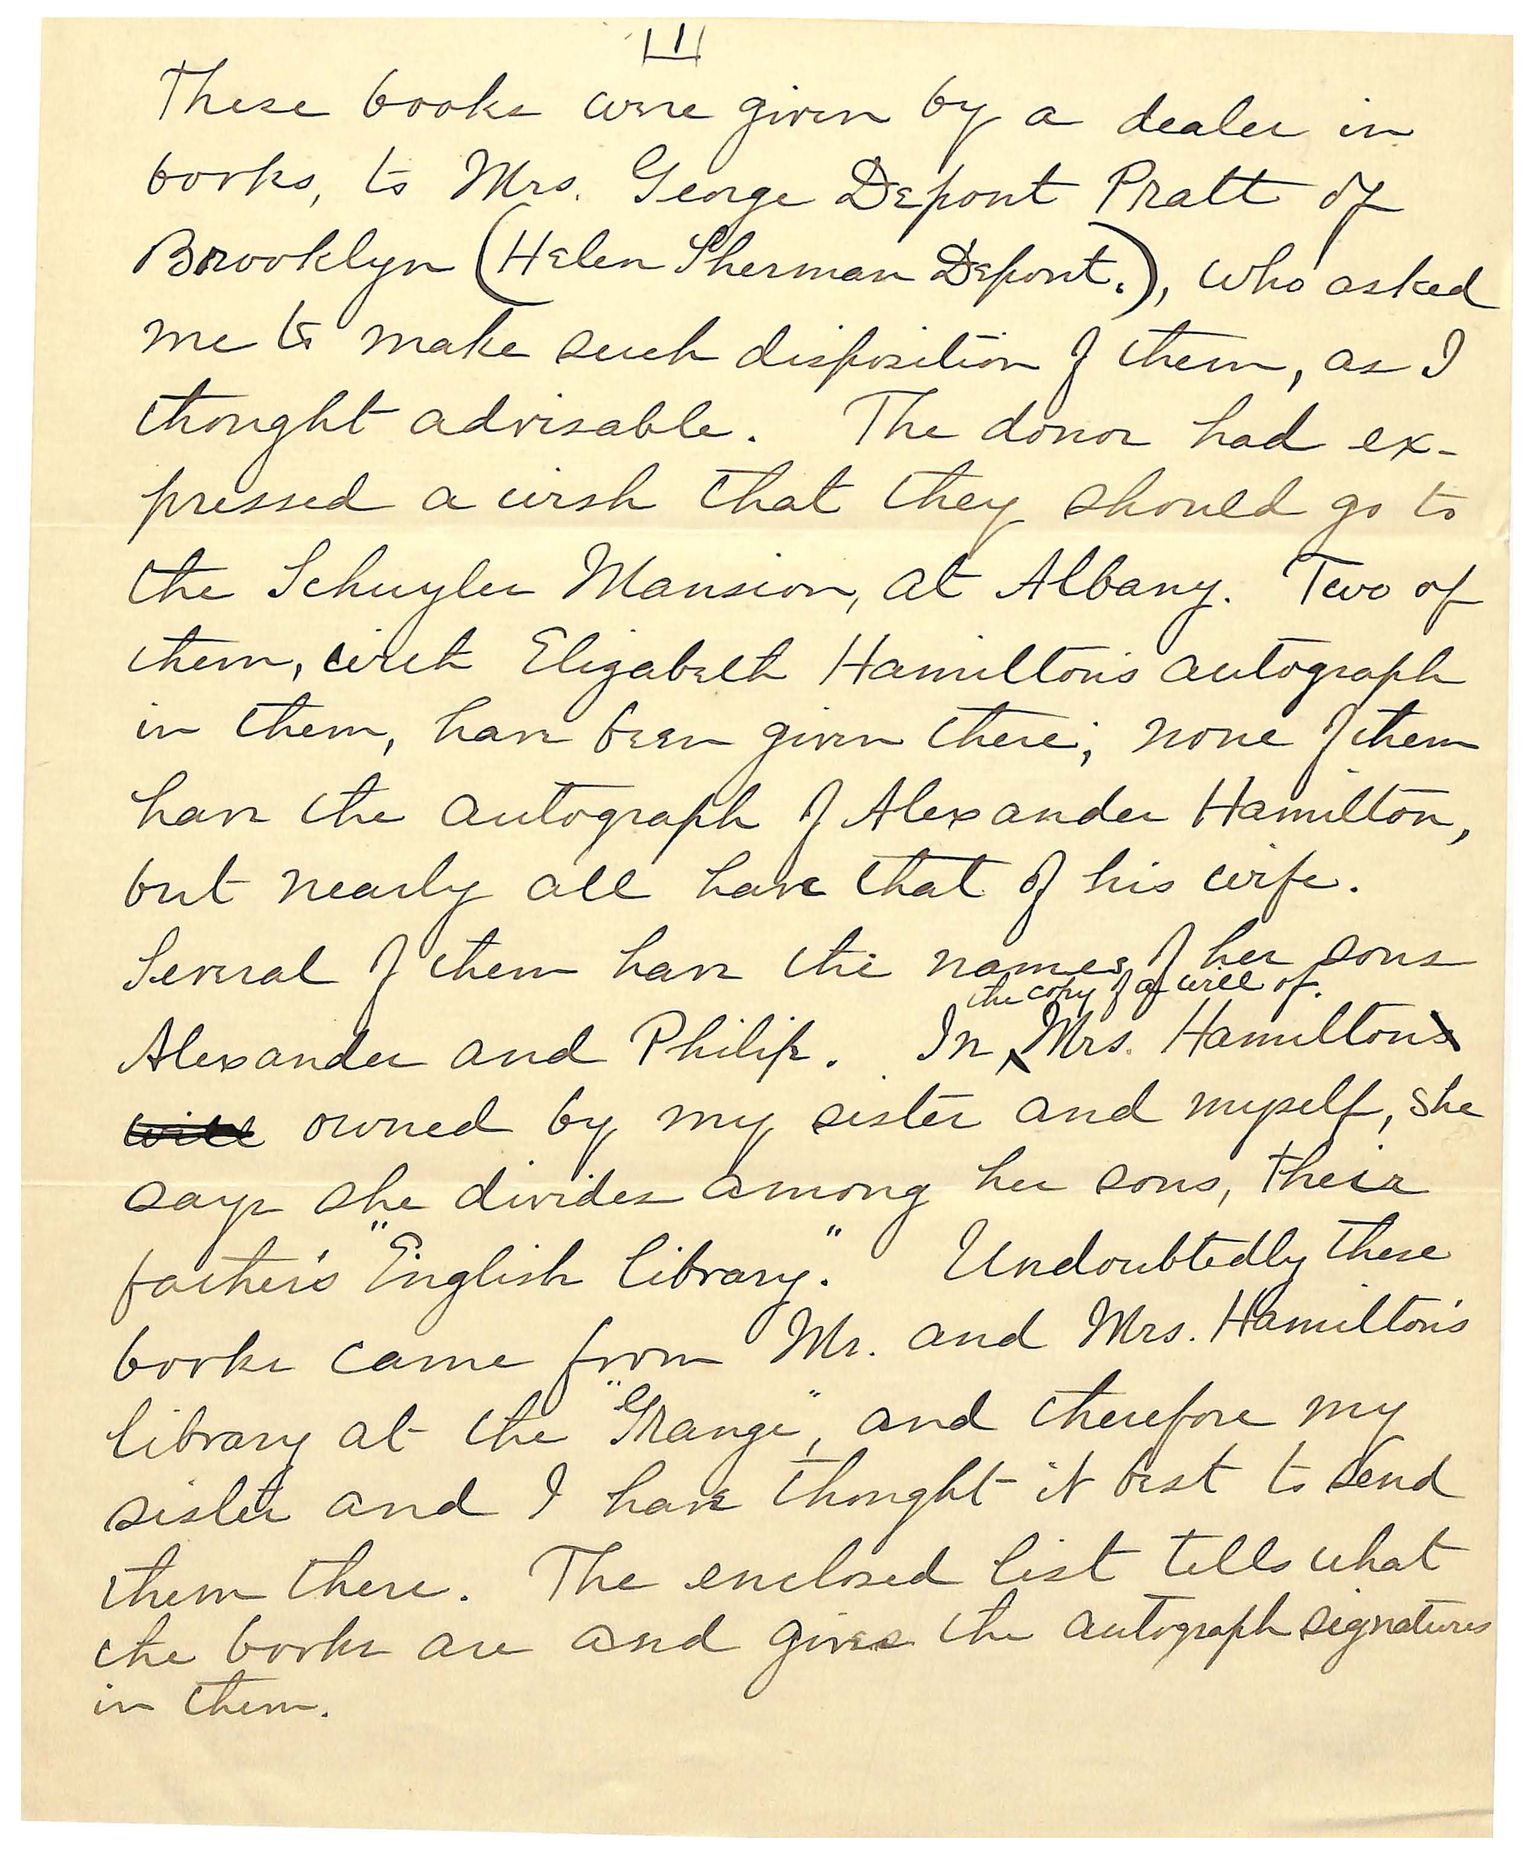 1
These books were given by a dealer in
books, to Mrs. George Depont Pratt of
Brooklyn (Helen Sherman Depont.), who asked
me to make such disposition of them, as I
thought advisable. The donor had ex-
pressed a wish that they should go to
the Schuyler Mansion, at Albany. Two of
them, with Elizabeth Hamilton's autograph
in them, have been given there; none of them
have the autograph of Alexander Hamilton,
but nearly all have that of his wife.
Several of them have the names of her sons
the copy of a will of.
Alexander and Philip. In Mrs. Hamilton's
will owned by my sister and myself, she
says she divides among her sons, their
father's "English library." Undoubtedly these
books came from Mr. and Mrs. Hamilton's
library at the "Grange", and therefore my
sister and I have thought it best to send
them there. The enclosed list tells what
the books are and gives the autograph signatures
in them.